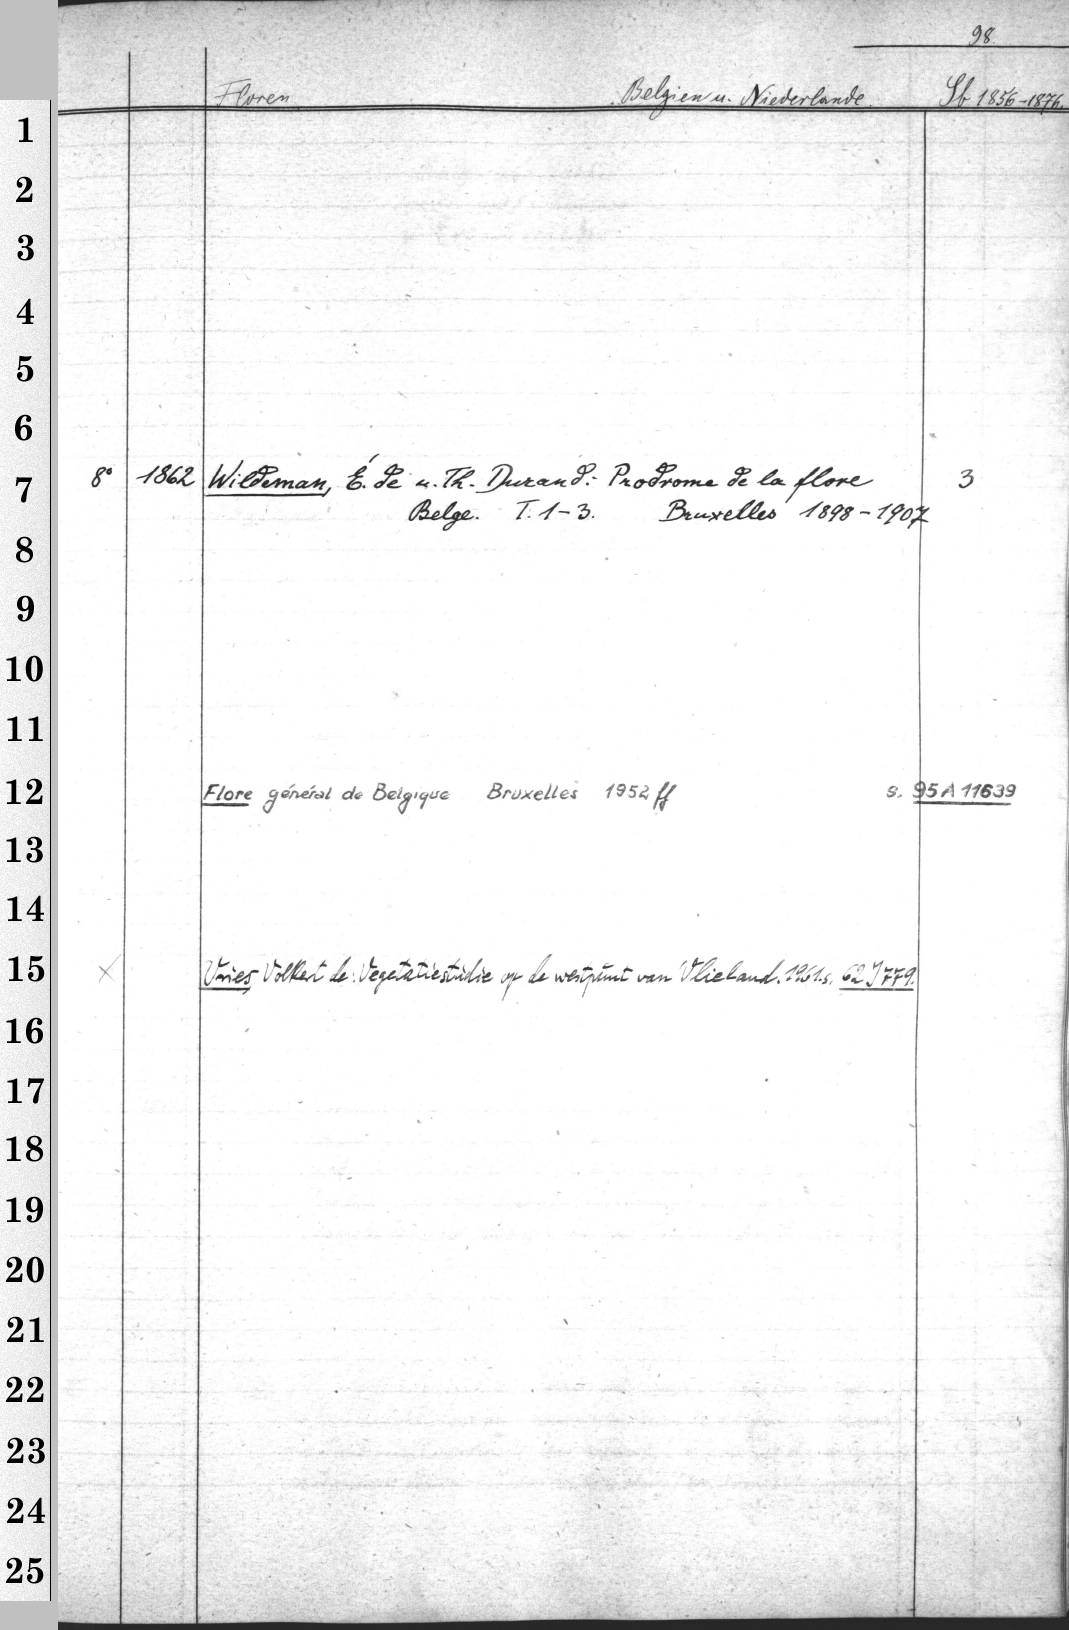 98.
Floren. Belgien u. Niederlande. Sb 1856-1876.
1
2
3
4
5
6
7 8° 1862 Wildeman, É. de u. Th. Durand: Prodrome de la flore 3
Belge. T. 1-3. Bruxelles 1898-1907
8
9
10
11
12 Flore général de Belgique Bruxelles 1952 ff s. 95 A 11639
13
14
15 × Vries, Volkert de: Vegetatiestudie op de westpunt van Vlieland. 1961. s. 62 J 779.
16
17
18
19
20
21
22
23
24
25